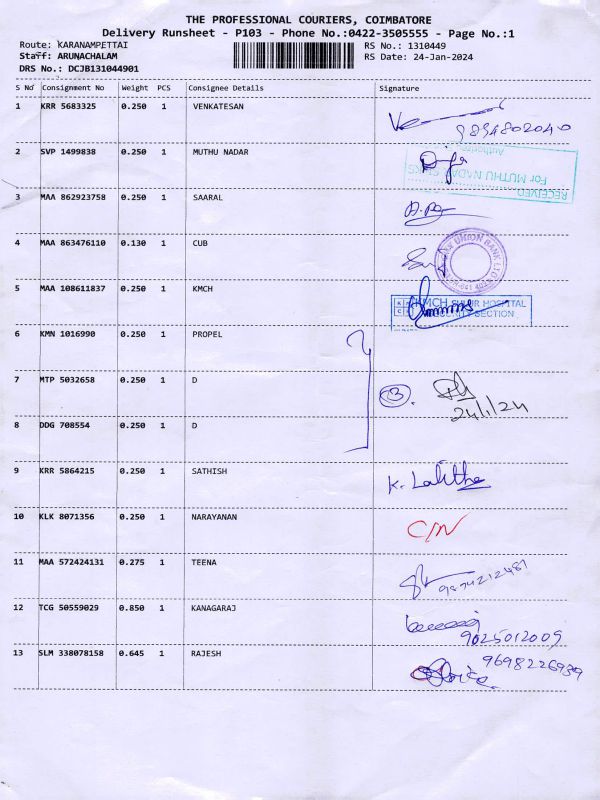 THE PROFESSIONAL COURIERS, COIMBATORE
Delivery Runsheet - P103 - Phone No.:0422-3505555 - Page No.:1
Route: KARANAMPETTAI RS No.: 1310449
Staff: ARUNACHALAM RS Date: 24-Jan-2024
DRS No.: DCJB131044901
S No Consignment No Weight PCS Consignee Details Signature
1 KRR 5683325 0.250 1 VENKATESAN
9894802040
2 SVP 1499838 0.250 1 MUTHU NADAR
RECEIVED
For MUTHU NADAR
3 MAA 862923758 0.250 1 SAARAL
4 MAA 863476110 0.130 1 CUB
UNION BANK LTD
5 MAA 108611837 0.250 1 KMCH
KMCH SULUR HOSPITAL
SECURITY SECTION
6 KMN 1016990 0.250 1 PROPEL
7 MTP 5032658 0.250 1 D
3.
24/1/24
8 DDG 708554 0.250 1 D
9 KRR 5864215 0.250 1 SATHISH K. Lalitha
10 KLK 8071356 0.250 1 NARAYANAN C/N
11 MAA 572424131 0.275 1 TEENA
12 TCG 50559029 0.850 1 KANAGARAJ
9025012009
13 SLM 338078158 0.645 1 RAJESH 9698226939